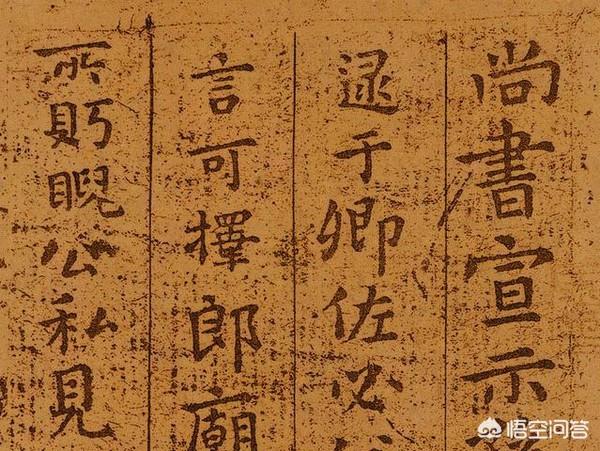 尚書宣示
逮于卿佐必
言可擇郎廟
所眄睨公私見
悟空问答